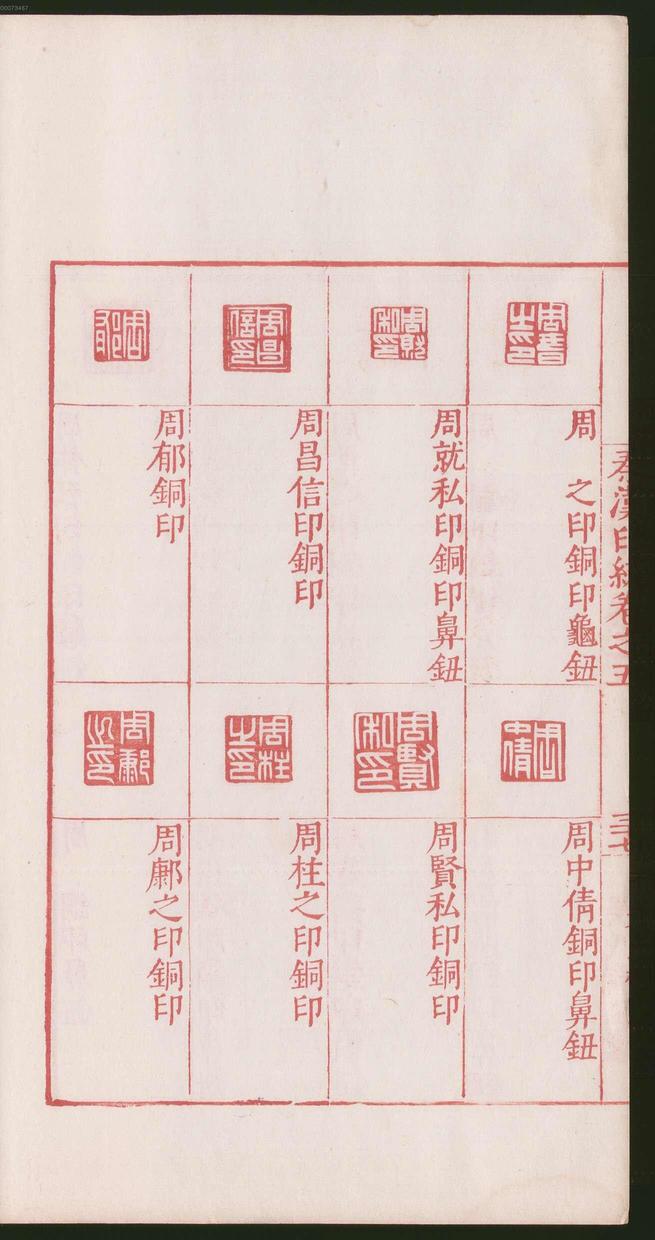 00073467
秦漢印統卷之五
三七
周　之印銅印龜鈕
周就私印銅印鼻鈕
周昌信印銅印
周郁銅印
周中倩銅印鼻鈕
周賢私印銅印
周柱之印銅印
周鄺之印銅印